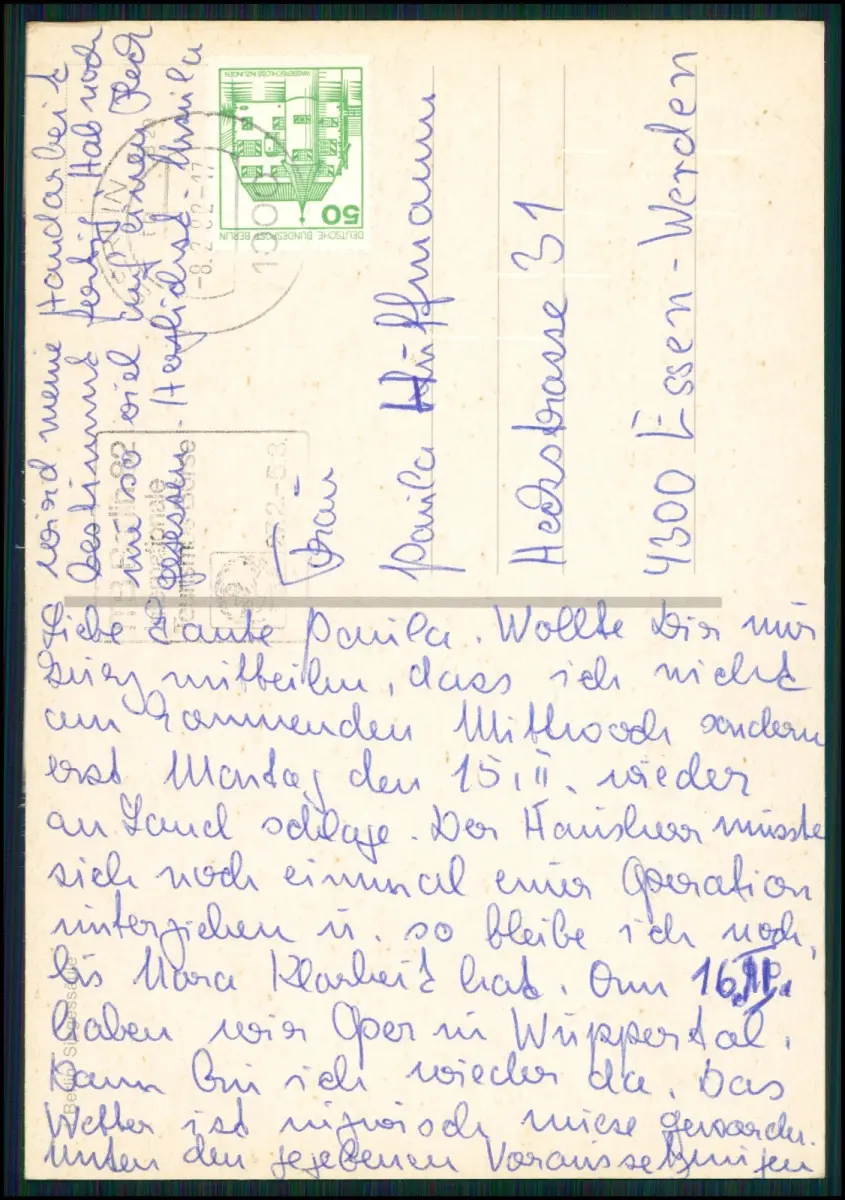 Liebe Tante Paula. Wollte Dir nur
kurz mitteilen, dass ich nicht
am kommenden Mittwoch sondern
erst Montag den 15. II. wieder
an Land schlage. Der Hausherr musste
sich noch einmal einer Operation
unterziehen u. so bleibe ich noch,
bis Mara Klarheit hat. Am 16. II.
haben wir Oper in Wuppertal.
Dann bin ich wieder da. Das
Wetter ist inzwisch miese geworden.
Unten den gegebenen Voraussetzungen
wird meine Handarbeit
bestimmt fertig. Hab noch
nie so viel auf einem Fleck
gesessen. Herzlichst Ursula
Frau
Paula Hüffmann
Heckstrasse 31
4300 Essen-Werden
50
DEUTSCHE BUNDESPOST BERLIN
WASSERSCHLOSS INZLINGEN
BERLIN
-8.2.82-17
1000
ITB Berlin 82
Internationale
Tourismus-Börse
Berlin, Siegessäule